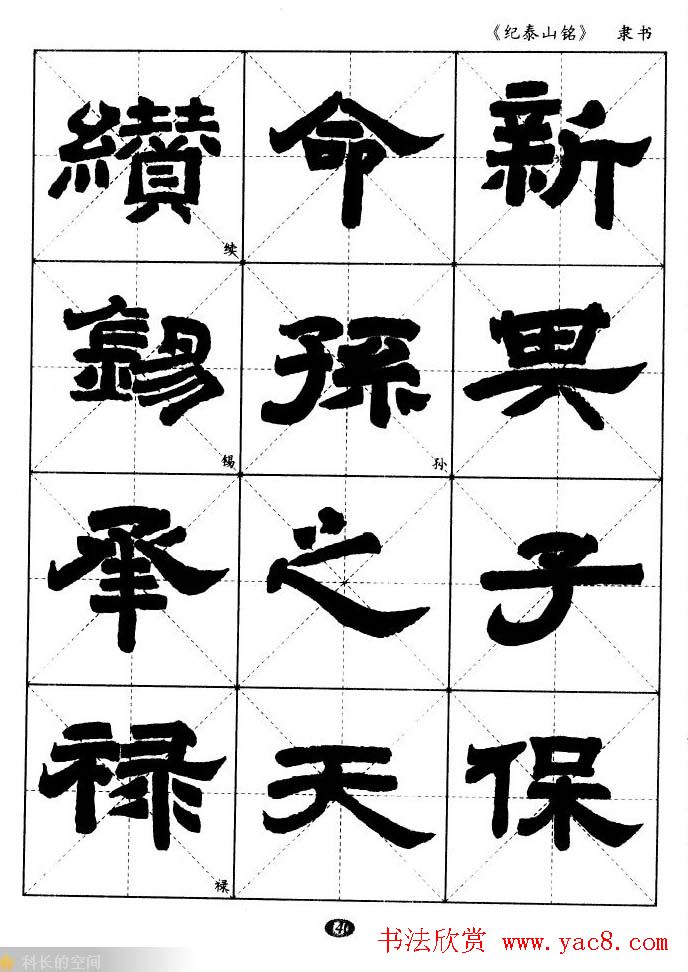 《纪泰山铭》 隶书
新畀子保
命孫之天
孙
纘錫承禄
续
锡
禄
书法欣赏 www.yac8.com
科长的空间